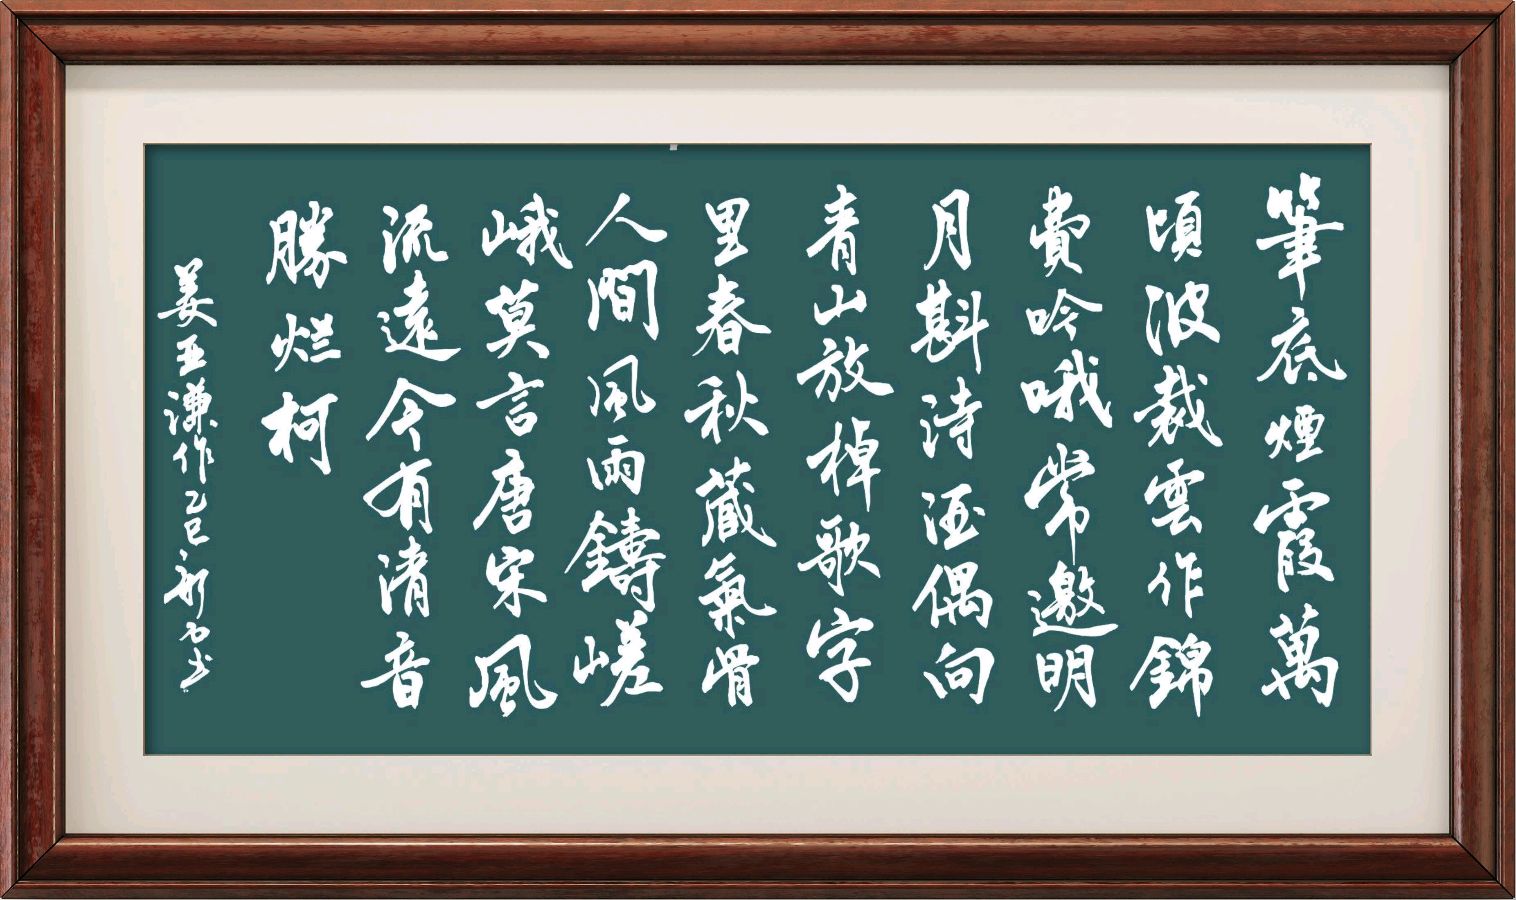 筆底煙霞萬
頃波裁雲作錦
費吟哦常邀明
月斟詩酒偶向
青山放棹歌字
里春秋藏氣骨
人間風雨鑄嵯
峨莫言唐宋風
流遠今有清音
勝烂柯
姜亚謙作乙巳彩石书